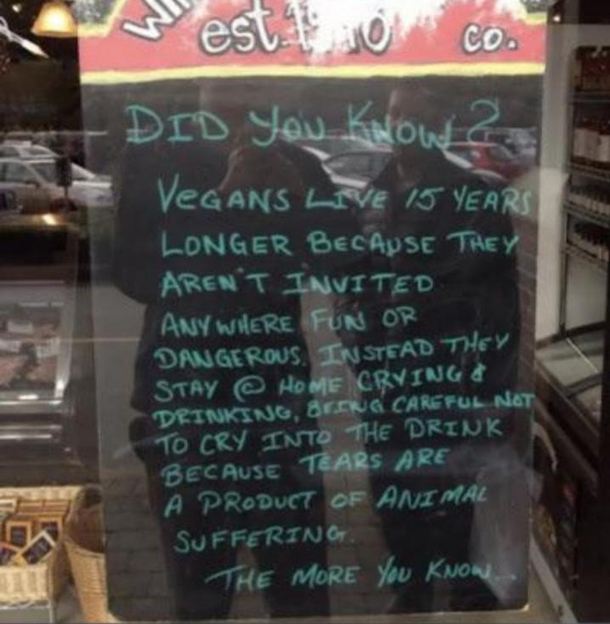 est.
co.
DID YOU KNOW?
VEGANS LIVE 15 YEARS
LONGER BECAUSE THEY
AREN'T INVITED
ANYWHERE FUN OR
DANGEROUS. INSTEAD THEY
STAY @ HOME CRYING &
DRINKING, BEING CAREFUL NOT
TO CRY INTO THE DRINK
BECAUSE TEARS ARE
A PRODUCT OF ANIMAL
SUFFERING.
THE MORE YOU KNOW...